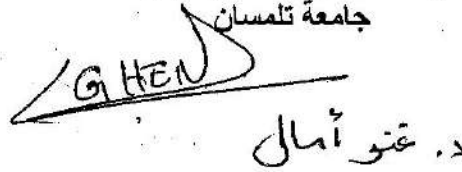 جامعة تلمسان
GHEN
د. غنو أمال